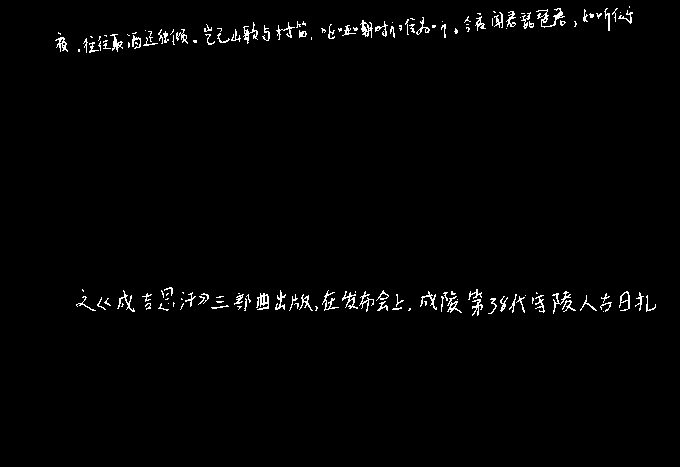 夜,往往取酒还独倾。岂无山歌与村笛,呕哑嘲哳难为听。今夜闻君琵琶语,如听仙乐
之《成吉思汗》三部曲出版,在发布会上,成陵第38代守陵人古日扎